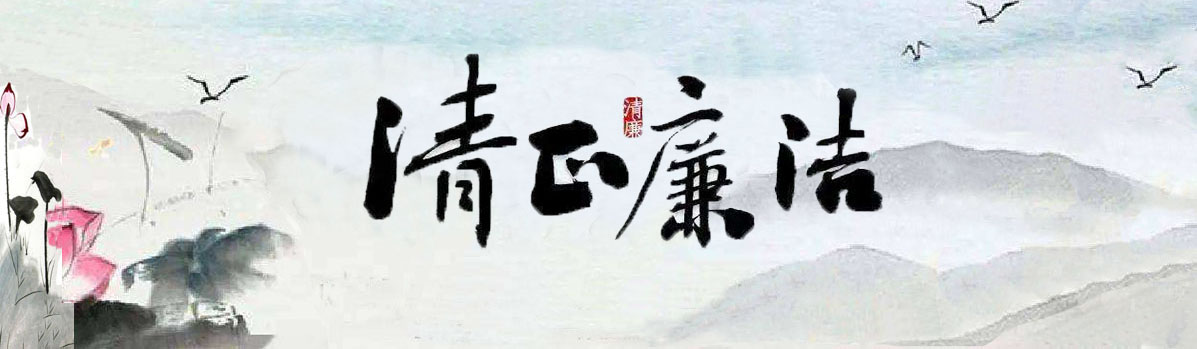 清正廉洁
清廉